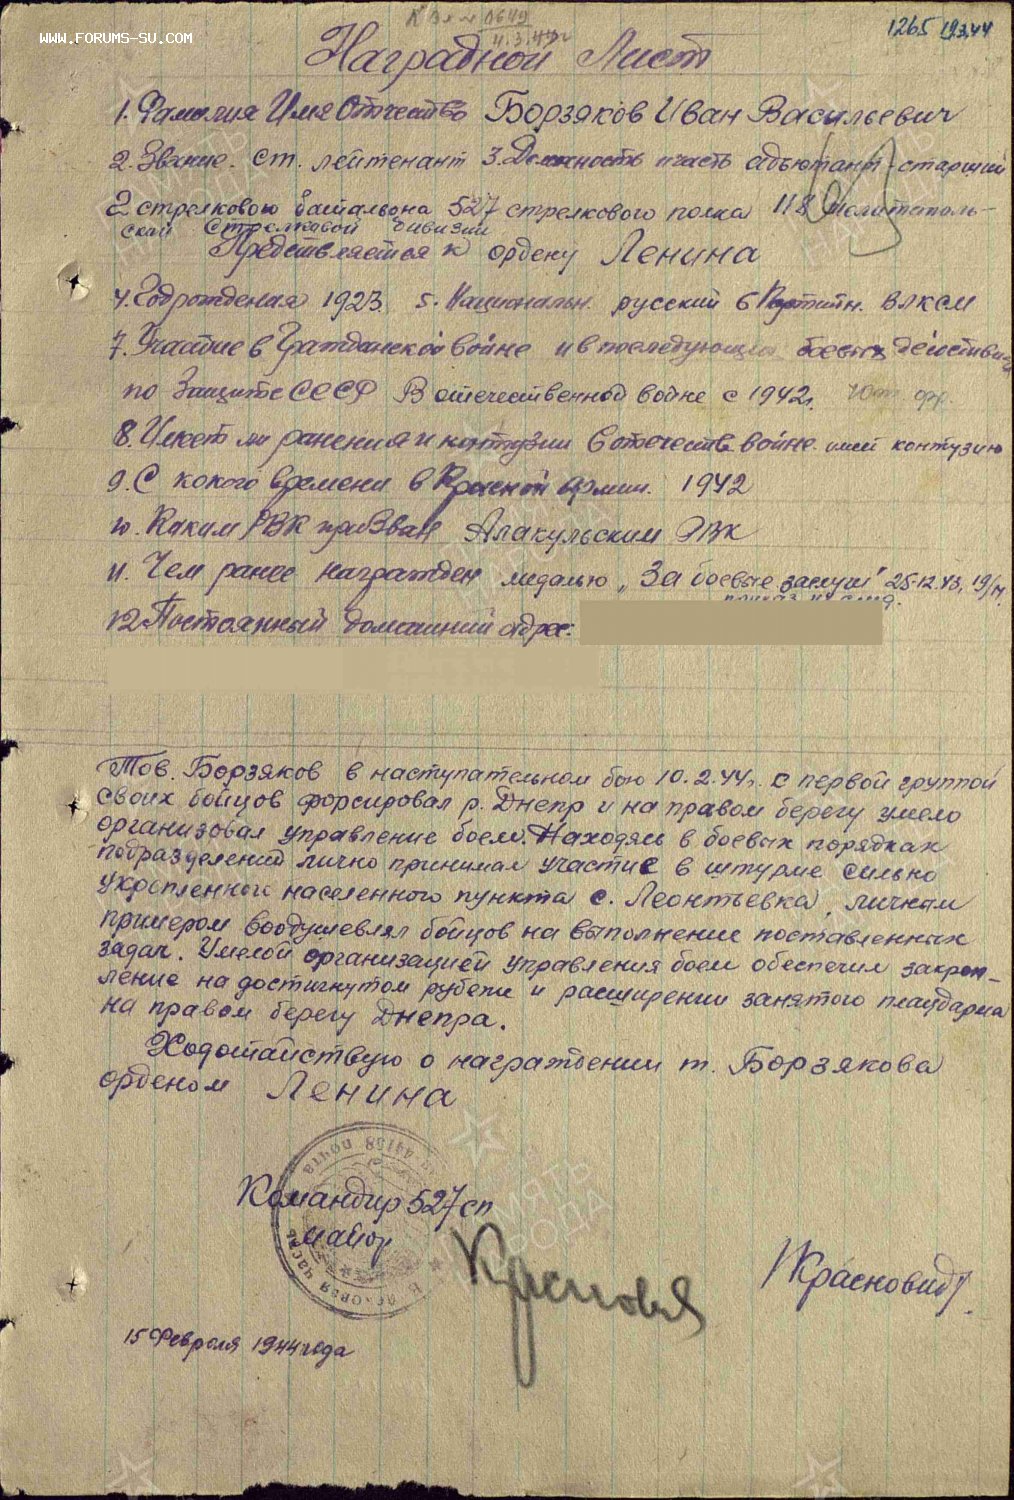 WWW.FORUMS-SU.COM
1265 19.3.44
0649
4.3.44г
Наградной Лист
1. Фамилия Имя Отчество Борзяков Иван Васильевич
2. Звание. ст. лейтенант 3. Должность и часть адъютант старший
2 стрелкового батальона 527 стрелкового полка 118 Мелитополь-
ской Стрелковой дивизии
Представляется к ордену Ленина
4. Год рождения 1923. 5. Национальн. русский 6 Партийн. ВЛКСМ
7. Участие в Гражданской войне и в последующих боевых действиях
по Защите СССР В отечественной войне с 1942г.
8. Имеет ли ранения и контузии в отечеств. войне. имеет контузию
9. С какого времени в Красной Армии. 1942
10. Каким РВК призван Алакульским РВК
11. Чем ранее награжден медалью „За боевые заслуги" 25.12.43, 19/н.
приказ
12 Постоянный домашний адрес:
Тов. Борзяков в наступательном бою 10.2.44г. с первой группой
своих бойцов форсировал р. Днепр и на правом берегу умело
организовал управление боем. Находясь в боевых порядках
подразделений лично принимал участие в штурме сильно
укрепленного населенного пункта с. Леонтьевка, личным
примером воодушевлял бойцов на выполнение поставленных
задач. Умелой организацией управления боем обеспечил закреп-
ление на достигнутом рубеже и расширении занятого плацдарма
на правом берегу Днепра.
Ходатайствую о награждении т. Борзякова
орденом Ленина
Командир 527 сп
майор
/Красновид/
15 Февраля 1944 года
ПАМЯТЬ
НАРОДА